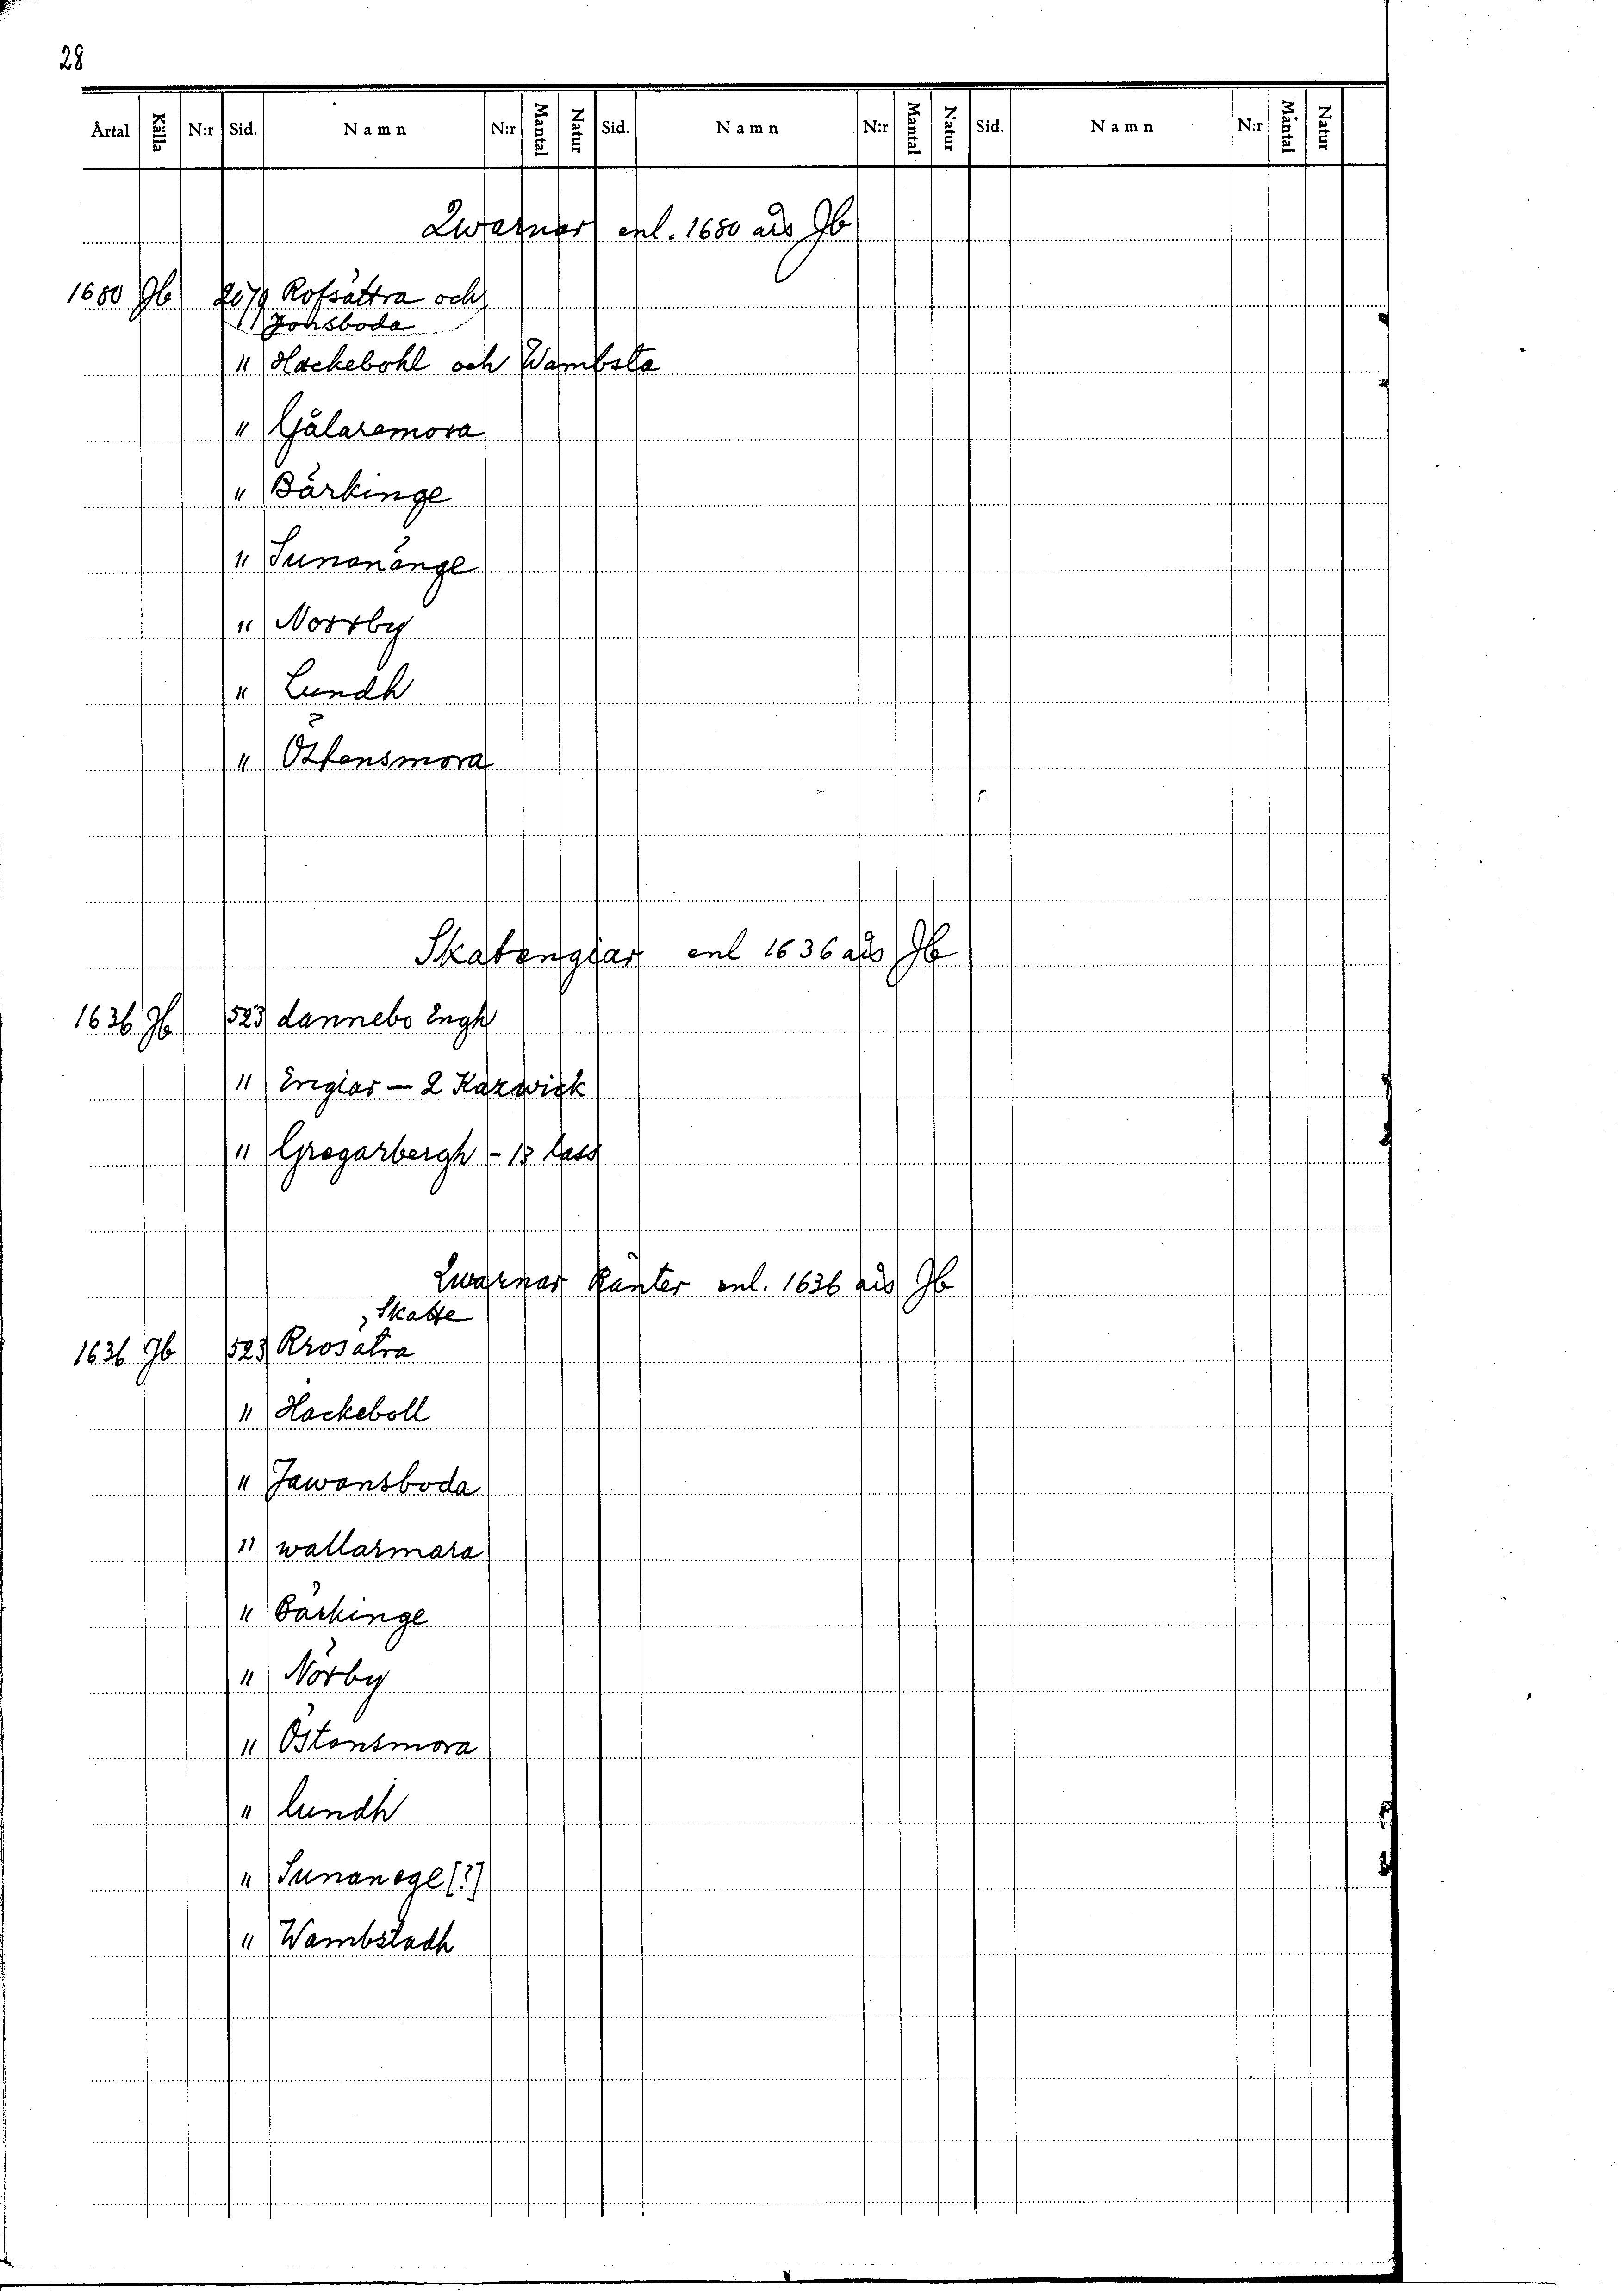 28
Årtal Källa N:r Sid. Namn N:r Mantal Natur Sid. Namn N:r Mantal Natur Sid. Namn N:r Mantal Natur
Qwarnar enl. 1680 års Jb
1680 Jb 2079 Rofsättra och
" Jonsboda
" Hackebohl och Wambsta
" Gålaremora
" Bärkinge
" Sunonänge
" Norrby
" Lundh
" Östensmora
Skatengiar enl 1636 års Jb
1636 Jb 523 dannebo Engh
" Engiar - 2 Karwick
" Gregarbergh - 13 lass
Qwarnar Ränter enl. 1636 års Jb
, Skatte
1636 Jb 523 Rrosätra
" Hackeboll
" Jawansboda
" wallarmara
" Bärkinge
" Nörby
" Östansmora
" lundh
" Sunanege [?]
" Wambstadh